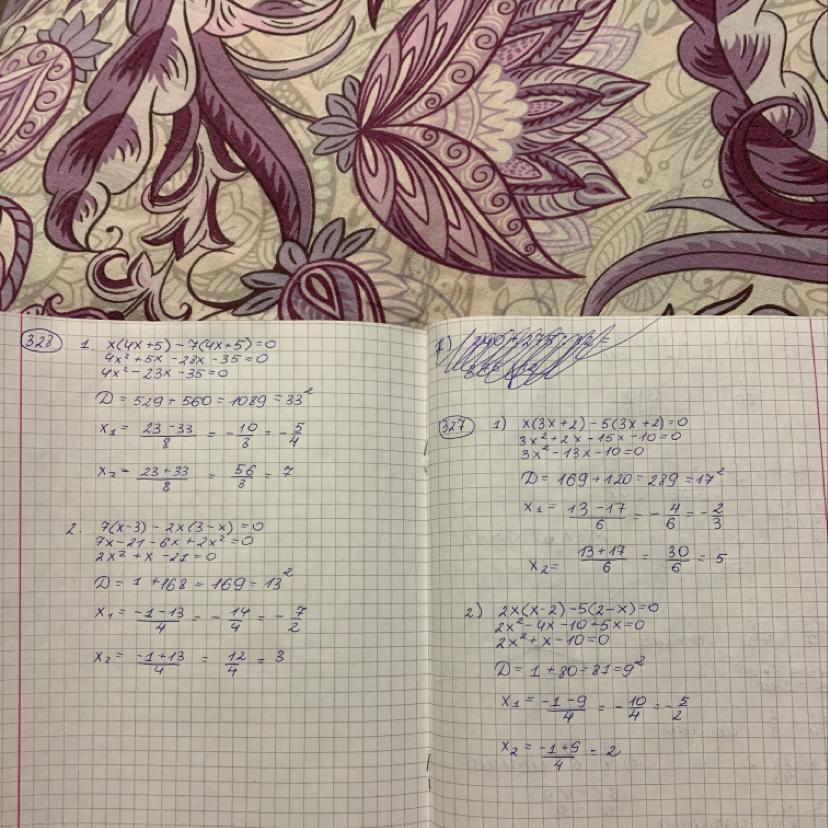 328
1. x(4x+5) - 7(4x+5) = 0
4x² + 5x - 28x - 35 = 0
4x² - 23x - 35 = 0
D = 529 + 560 = 1089 = 33²
x₁ = (23 - 33)/8 = -10/8 = -5/4
x₂ = (23 + 33)/8 = 56/8 = 7
2. 7(x-3) - 2x(3-x) = 0
7x - 21 - 6x + 2x² = 0
2x² + x - 21 = 0
D = 1 + 168 = 169 = 13²
x₁ = (-1 - 13)/4 = -14/4 = -7/2
x₂ = (-1 + 13)/4 = 12/4 = 3
327
1) x(3x+2) - 5(3x+2) = 0
3x² + 2x - 15x - 10 = 0
3x² - 13x - 10 = 0
D = 169 + 120 = 289 = 17²
x₁ = (13 - 17)/6 = -4/6 = -2/3
x₂ = (13 + 17)/6 = 30/6 = 5
2) 2x(x-2) - 5(2-x) = 0
2x² - 4x - 10 + 5x = 0
2x² + x - 10 = 0
D = 1 + 80 = 81 = 9²
x₁ = (-1 - 9)/4 = -10/4 = -5/2
x₂ = (-1 + 9)/4 = 2